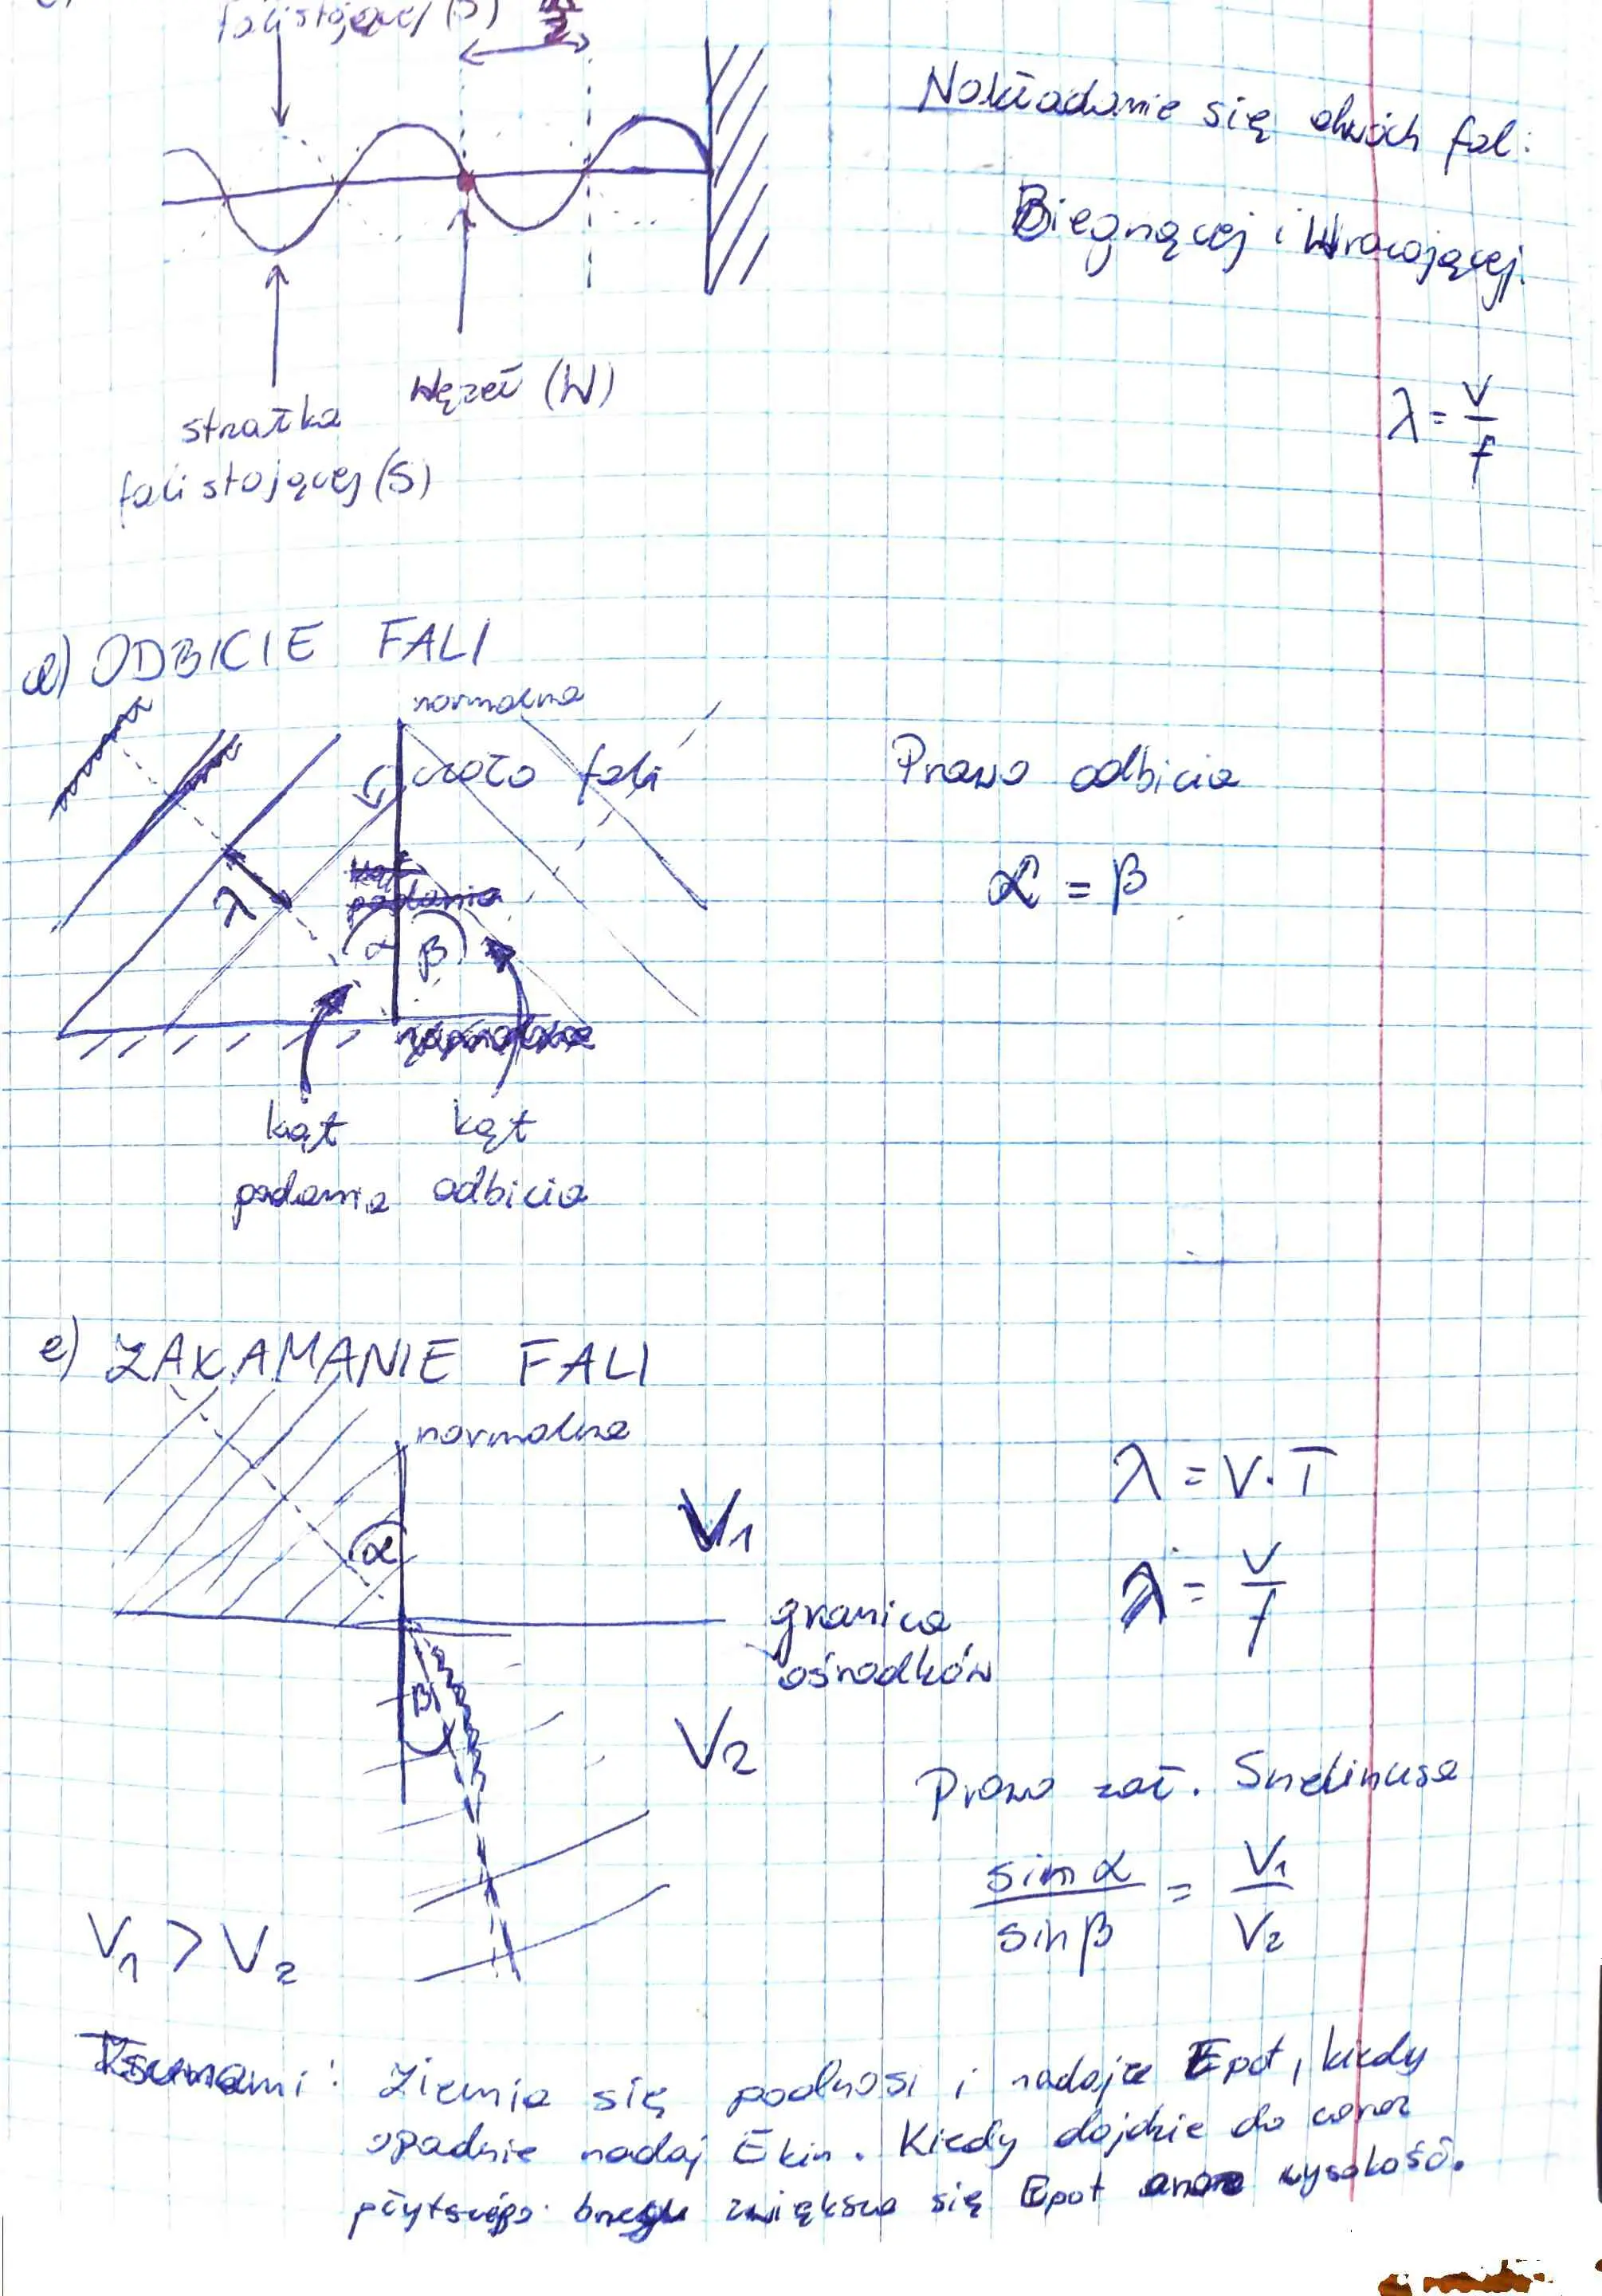 fali stojącej (S)
Nakładanie się dwóch fal:
Biegnącej i Wracającej.
Węzeł (W)
strzałka
fali stojącej (S)
λ = v/f
d) ODBICIE FALI
normalna
czoło fali
Prawo odbicia
λ
α β
α = β
kąt padania
kąt odbicia
e) ZAŁAMANIE FALI
normalna
λ = V · T
V₁
α
λ = v/f
granica
ośrodków
β
V₂
Prawo zał. Snelliusa
sin α / sin β = V₁ / V₂
V₁ > V₂
Tsunami: Ziemia się podnosi i nadaje Epot, kiedy
opadnie nadaj Ekin. Kiedy dojdzie do coraz
płytszego brzegu zwiększa się Epot oraz wysokość.